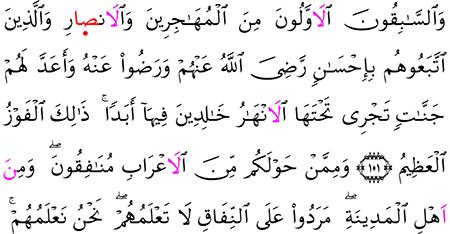 وَالسَّٰبِقُونَ الَاوَّلُونَ مِنَ الْمُهَٰجِرِينَ وَالَانصارِ وَالَّذِينَ
اتَّبَعُوهُم بِإِحْسَٰنٖ رَّضِىَ اللَّهُ عَنْهُمْ وَرَضُوا عَنْهُ وَأَعَدَّ لَهُمْ
جَنَّٰتٖ تَجْرِى تَحْتَهَا الَانْهَٰرُ خَٰلِدِينَ فِيهَآ أَبَدٗا ۚ ذَٰلِكَ الْفَوْزُ
الْعَظِيمُ ﴿١٠١﴾ وَمِمَّنْ حَوْلَكُم مِّنَ الَاعْرَابِ مُنَٰفِقُونَ ۖ وَمِنَ
اَهْلِ الْمَدِينَةِ ۖ مَرَدُوا عَلَى النِّفَاقِ لَا تَعْلَمُهُمْ ۖ نَحْنُ نَعْلَمُهُمْ ۚ